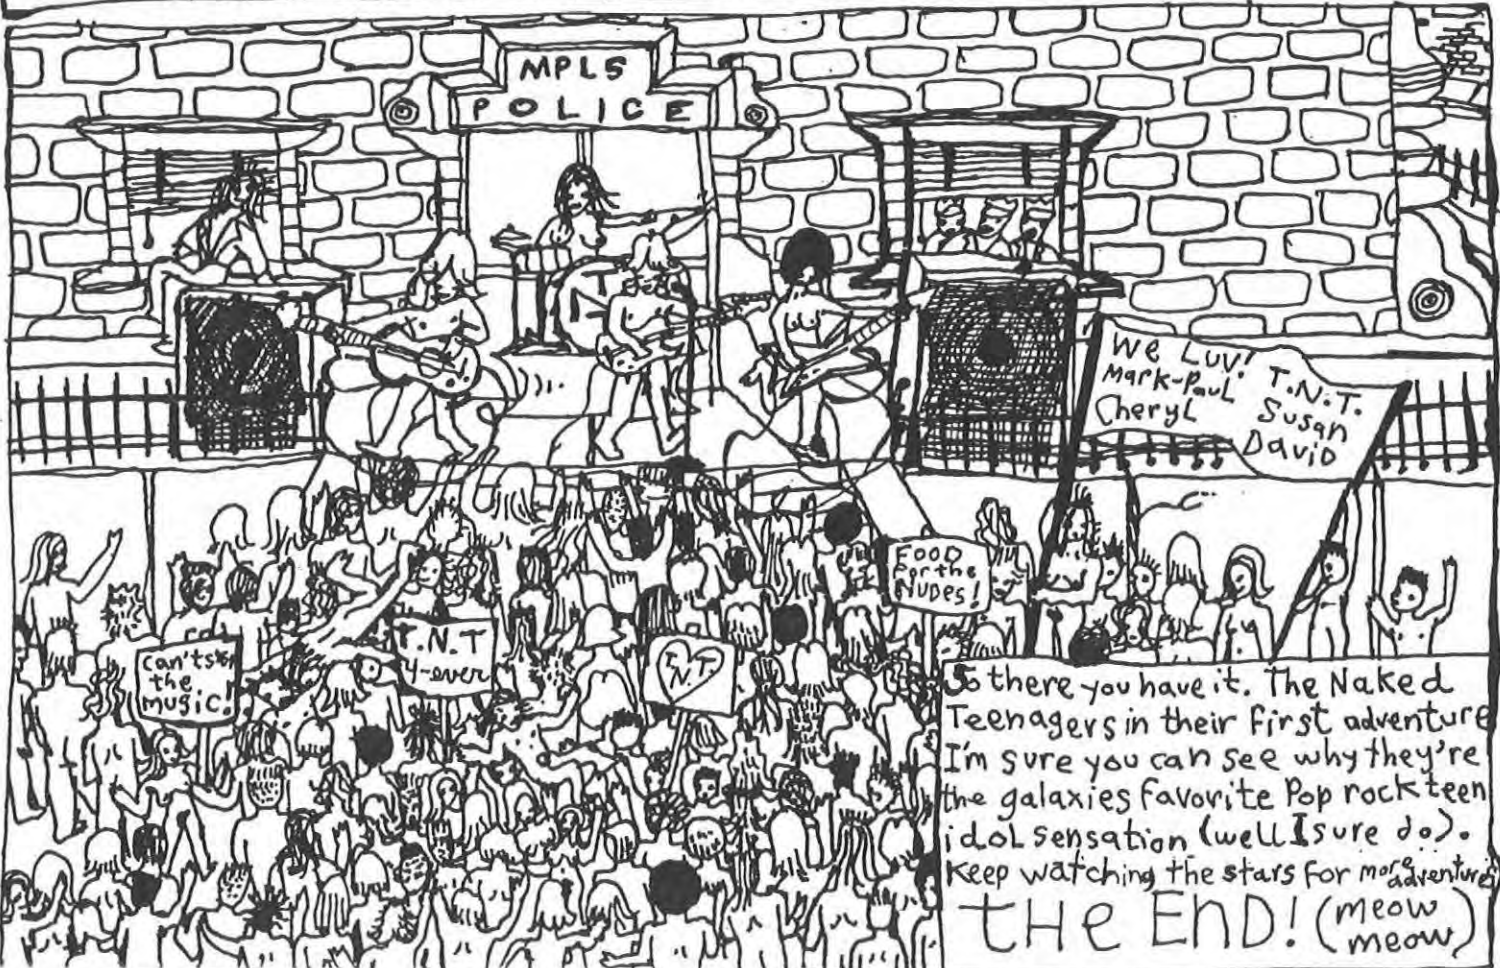 MPLS
POLICE
We Luv!
Mark-Paul
Cheryl
T.N.T.
Susan
David
FOOD
For the
NUDES!
T.N.T
4-ever
T.N.T.
the
music!
T
So there you have it. The Naked
Teenagers in their first adventure
I'm sure you can see why they're
the galaxies favorite Pop rock teen
idol sensation (well I sure do).
Keep watching the stars for more adventures
THE END! (meow
meow)